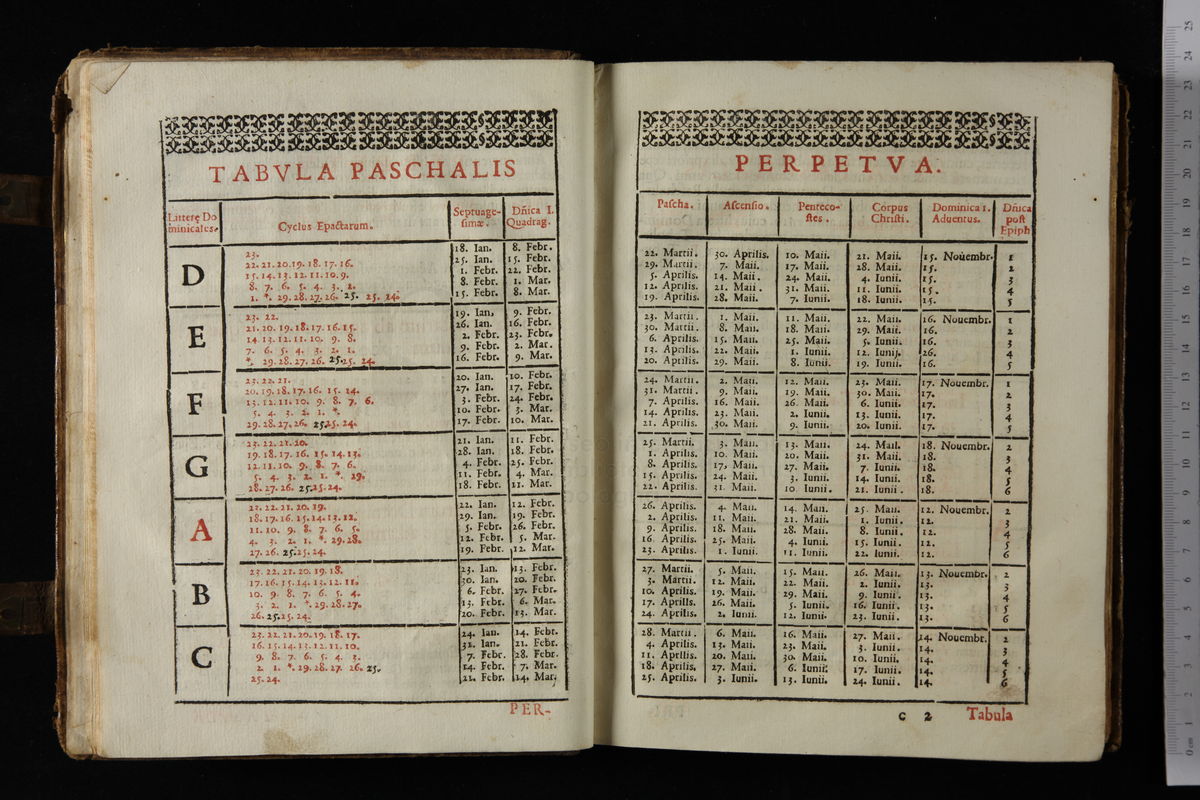 TABVLA PASCHALIS
Litterę Do
minicales.
Cyclus Epactarum.
Septuage-
simæ.
Dñica I.
Quadrag.
D
23.
22. 21. 20. 19. 18. 17. 16.
15. 14. 13. 12. 11. 10. 9.
8. 7. 6. 5. 4. 3. 2.
1. *. 29. 28. 27. 26. 25. 25. 24.
18. Ian. 8. Febr.
25. Ian. 15. Febr.
1. Febr. 22. Febr.
8. Febr. 1. Mar.
15. Febr. 8. Mar.
E
23. 22.
21. 20. 19. 18. 17. 16. 15.
14. 13. 12. 11. 10. 9. 8.
7. 6. 5. 4. 3. 2. 1.
*. 29. 28. 27. 26. 25. 25. 24.
19. Ian. 9. Febr.
26. Ian. 16. Febr.
2. Febr. 23. Febr.
9. Febr. 2. Mar.
16. Febr. 9. Mar.
F
23. 22. 21.
20. 19. 18. 17. 16. 15. 14.
13. 12. 11. 10. 9. 8. 7. 6.
5. 4. 3. 2. 1. *.
29. 28. 27. 26. 25. 25. 24.
20. Ian. 10. Febr.
27. Ian. 17. Febr.
3. Febr. 24. Febr.
10. Febr. 3. Mar.
17. Febr. 10. Mar.
G
23. 22. 21. 20.
19. 18. 17. 16. 15. 14. 13.
12. 11. 10. 9. 8. 7. 6.
5. 4. 3. 2. 1. *. 29.
28. 27. 26. 25. 25. 24.
21. Ian. 11. Febr.
28. Ian. 18. Febr.
4. Febr. 25. Febr.
11. Febr. 4. Mar.
18. Febr. 11. Mar.
A
23. 22. 21. 20. 19.
18. 17. 16. 15. 14. 13. 12.
11. 10. 9. 8. 7. 6. 5.
4. 3. 2. 1. *. 29. 28.
27. 26. 25. 25. 24.
22. Ian. 12. Febr.
29. Ian. 19. Febr.
5. Febr. 26. Febr.
12. Febr. 5. Mar.
19. Febr. 12. Mar.
B
23. 22. 21. 20. 19. 18.
17. 16. 15. 14. 13. 12. 11.
10. 9. 8. 7. 6. 5. 4.
3. 2. 1. *. 29. 28. 27.
26. 25. 25. 24.
23. Ian. 13. Febr.
30. Ian. 20. Febr.
6. Febr. 27. Febr.
13. Febr. 6. Mar.
20. Febr. 13. Mar.
C
23. 22. 21. 20. 19. 18. 17.
16. 15. 14. 13. 12. 11. 10.
9. 8. 7. 6. 5. 4. 3.
2. 1. *. 29. 28. 27. 26. 25.
25. 24.
24. Ian. 14. Febr.
31. Ian. 21. Febr.
7. Febr. 28. Febr.
14. Febr. 7. Mar.
21. Febr. 14. Mar.
PER-
PERPETVA.
Pascha.
Ascensio.
Penteco-
stes.
Corpus
Christi.
Dominica 1.
Aduentus.
Dñica
post
Epiph
22. Martii. 30. Aprilis. 10. Maii. 21. Maii. 15. Nouembr. 1
29. Martii. 7. Maii. 17. Maii. 28. Maii. 15. 2
5. Aprilis. 14. Maii. 24. Maii. 4. Iunii. 15. 3
12. Aprilis. 21. Maii. 31. Maii. 11. Iunii. 15. 4
19. Aprilis. 28. Maii. 7. Iunii. 18. Iunii. 15. 5
23. Martii. 1. Maii. 11. Maii. 22. Maii. 16. Nouembr. 1
30. Martii. 8. Maii. 18. Maii. 29. Maii. 16. 2
6. Aprilis. 15. Maii. 25. Maii. 5. Iunii. 16. 3
13. Aprilis. 22. Maii. 1. Iunii. 12. Iunii. 26. 4
20. Aprilis. 29. Maii. 8. Iunii. 19. Iunii. 16. 5
24. Martii. 2. Maii. 12. Maii. 23. Maii. 17. Nouembr. 1
31. Martii. 9. Maii. 19. Maii. 30. Maii. 17. 2
7. Aprilis. 16. Maii. 26. Maii. 6. Iunii. 17. 3
14. Aprilis. 23. Maii. 2. Iunii. 13. Iunii. 17. 4
21. Aprilis. 30. Maii. 9. Iunii. 20. Iunii. 17. 5
25. Martii. 3. Maii. 13. Maii. 24. Maii. 18. Nouembr. 2
1. Aprilis. 10. Maii. 20. Maii. 31. Maii. 18. 3
8. Aprilis. 17. Maii. 27. Maii. 7. Iunii. 18. 4
15. Aprilis. 24. Maii. 3. Iunii. 14. Iunii. 18. 5
22. Aprilis. 31. Maii. 10 Iunii. 21. Iunii. 18. 6
26. Aprilis. 4. Maii. 14. Maii. 25. Maii. 12. Nouembr. 2
2. Aprilis. 11. Maii. 21. Maii. 1. Iunii. 12. 3
9. Aprilis. 18. Maii. 28. Maii. 8. Iunii. 12. 4
16. Aprilis. 25. Maii. 4. Iunii. 15. Iunii. 12. 5
23. Aprilis. 1. Iunii. 11. Iunii. 22. Iunii. 12. 6
27. Martii. 5. Maii. 15. Maii. 26. Maii. 13. Nouembr. 2
3. Martii. 12. Maii. 22. Maii. 2. Iunii. 13. 3
10. Aprilis. 19. Maii. 29. Maii. 9. Iunii. 13. 4
17. Aprilis. 26. Maii. 5. Iunii. 16. Iunii. 13. 5
24. Aprilis. 2. Iunii. 12. Iunii. 23. Iunii. 13. 6
28. Martii. 6. Maii. 16. Maii. 27. Maii. 14. Nouembr. 2
4. Aprilis. 13. Maii. 23. Maii. 3. Iunii. 14. 3
11. Aprilis. 20. Maii. 30. Maii. 10. Iunii. 14. 4
18. Aprilis. 27. Maii. 6. Iunii. 17. Iunii. 14. 5
25. Aprilis. 3. Iunii. 13. Iunii. 24. Iunii. 14. 6
C 2 Tabula